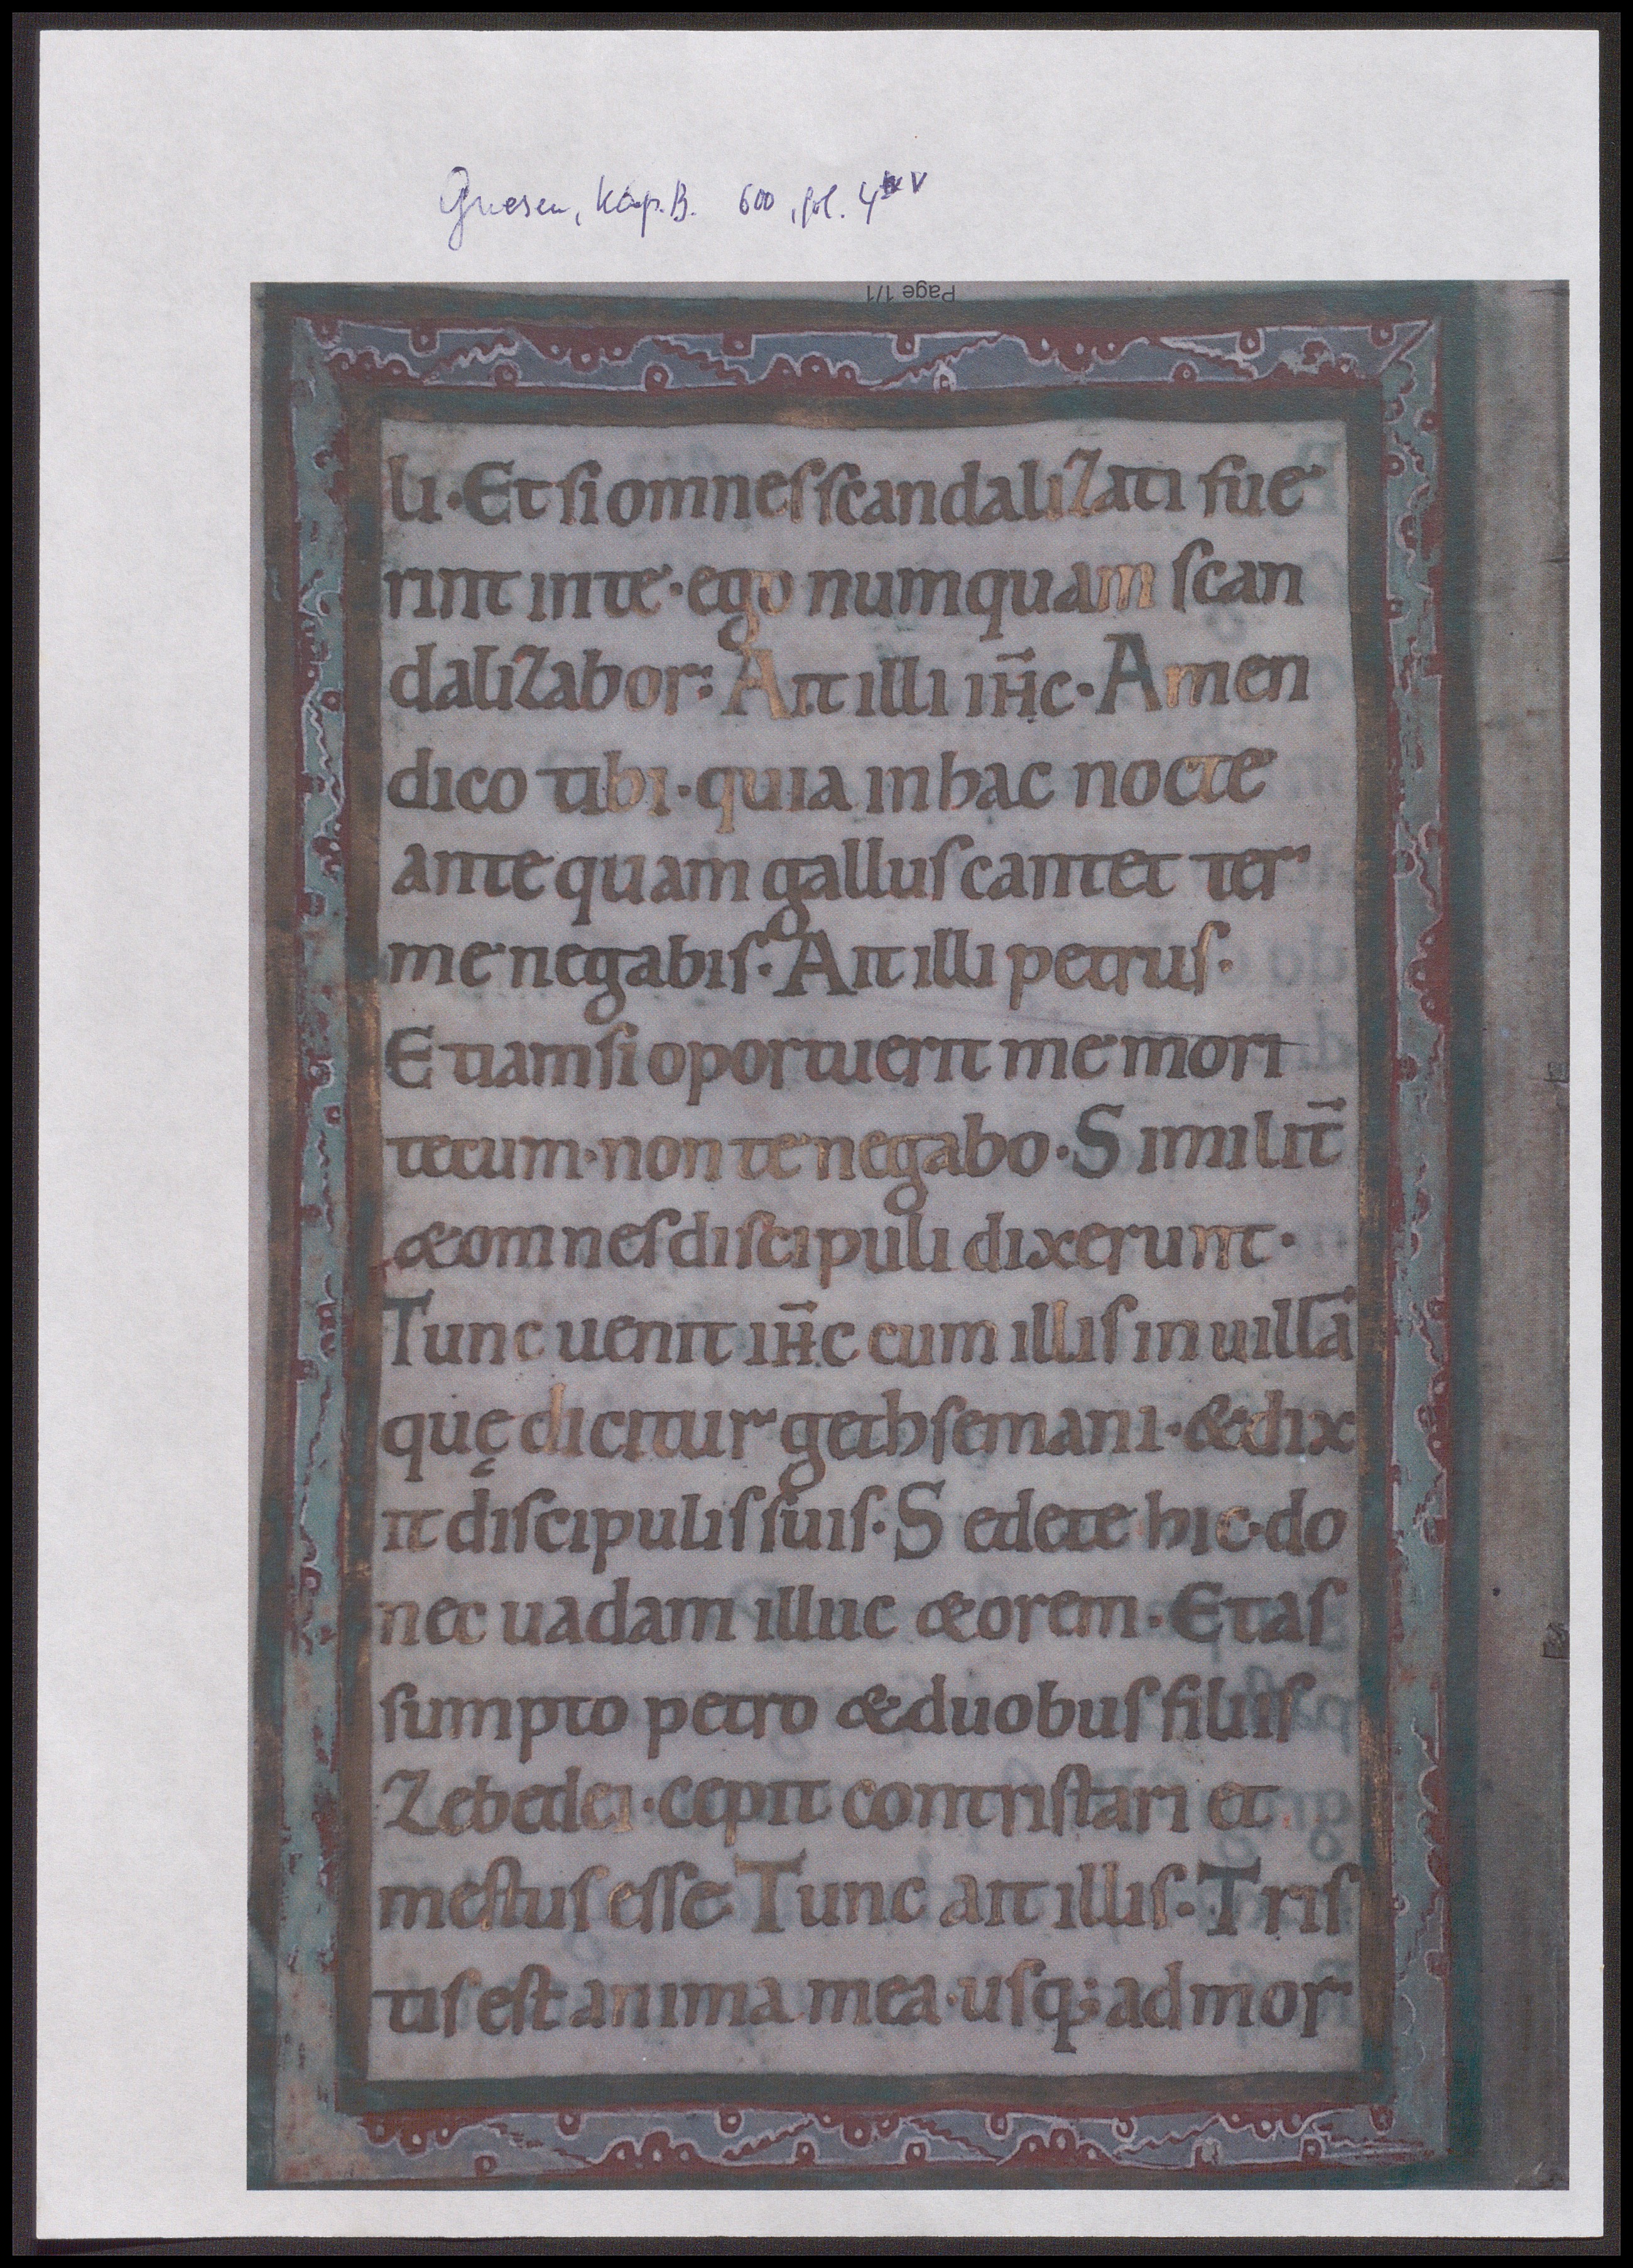 Gnesen, Kap. B. 600, fol. 4 v
Page 1/1
li · Et si omnes scandalizati fue
rint in te · ego numquam scan
dalizabor : Ait illi ih̄c · Amen
dico tibi · quia in hac nocte
ante quam gallus cantet ter
me negabis · Ait illi petrus ·
Etiam si oportuerit me mori
tecum · non te negabo · Similit̄
& omnes discipuli dixerunt ·
Tunc uenit ih̄c cum illis in uillā
quę dicitur gethsemani · & dix
it discipulis suis · Sedete hic · do
nec uadam illuc & orem · Et as
sumpto petro & duobus filiis
Zebedei · cepit contristari et
mestus esse Tunc ait illis · Tris
tis est anima mea · usq; ad mor